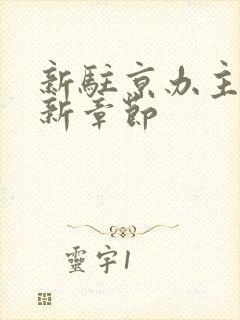 新駐京办主
新章節
靈宇1